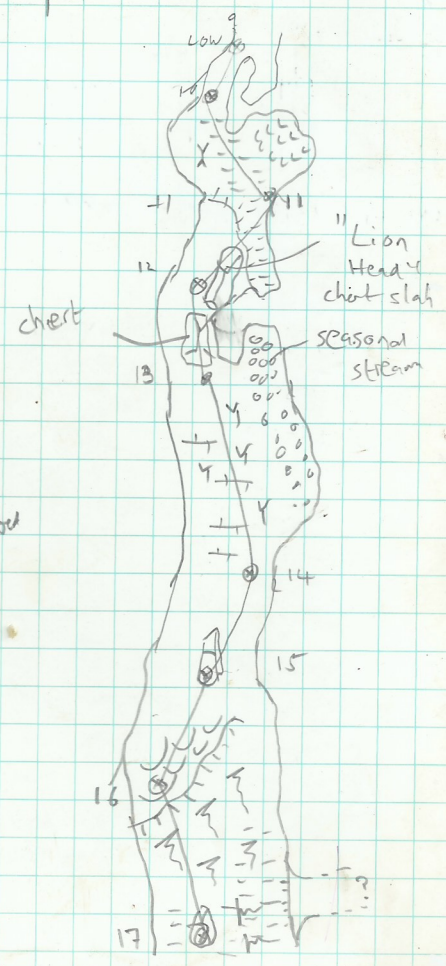 9
LOW
10
11
11
12
"Lion
Head"
chert slab
chert
seasonal
stream
13
14
15
16
17
?